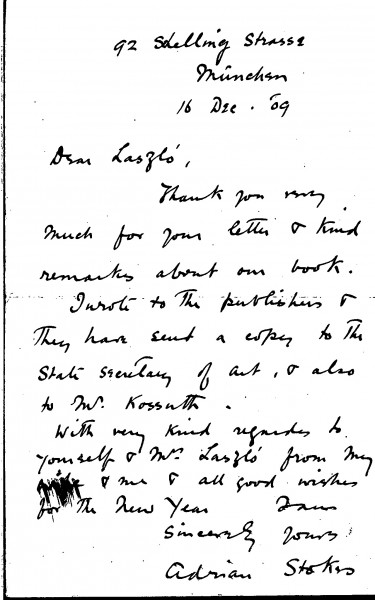 92 Schelling Strasse
München
16 Dec. '09
Dear László,
Thank you very
much for your letter & kind
remarks about our book.
I wrote to the publishers &
they have send a copy to the
State Secretary of Art, & also
to Mr. Kossuth.
With very kind regards to
yourself & Mrs. László from my
& me & all good wishes
for the New Year
Sincerely yours
Adrian Stokes